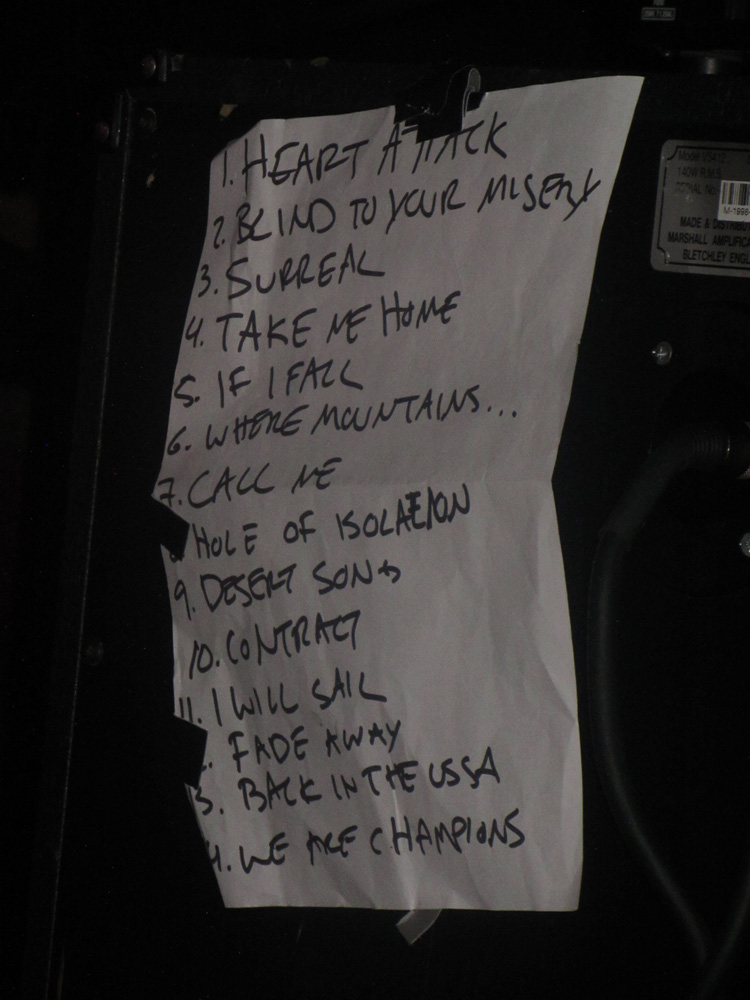 1. HEART ATTACK
2. BLIND TO YOUR MISERY
3. SURREAL
4. TAKE ME HOME
5. IF I FALL
6. WHERE MOUNTAINS...
7. CALL ME
HOLE OF ISOLATION
9. DESERT SONG
10. CONTRACT
11. I WILL SAIL
2. FADE AWAY
3. BACK IN THE USSA
4. WE ARE CHAMPIONS
Model VS412
140W R.M.S
SERIAL No
M-1998-
MADE & DISTRIBU
MARSHALL AMPLIFICA
BLETCHLEY ENGL